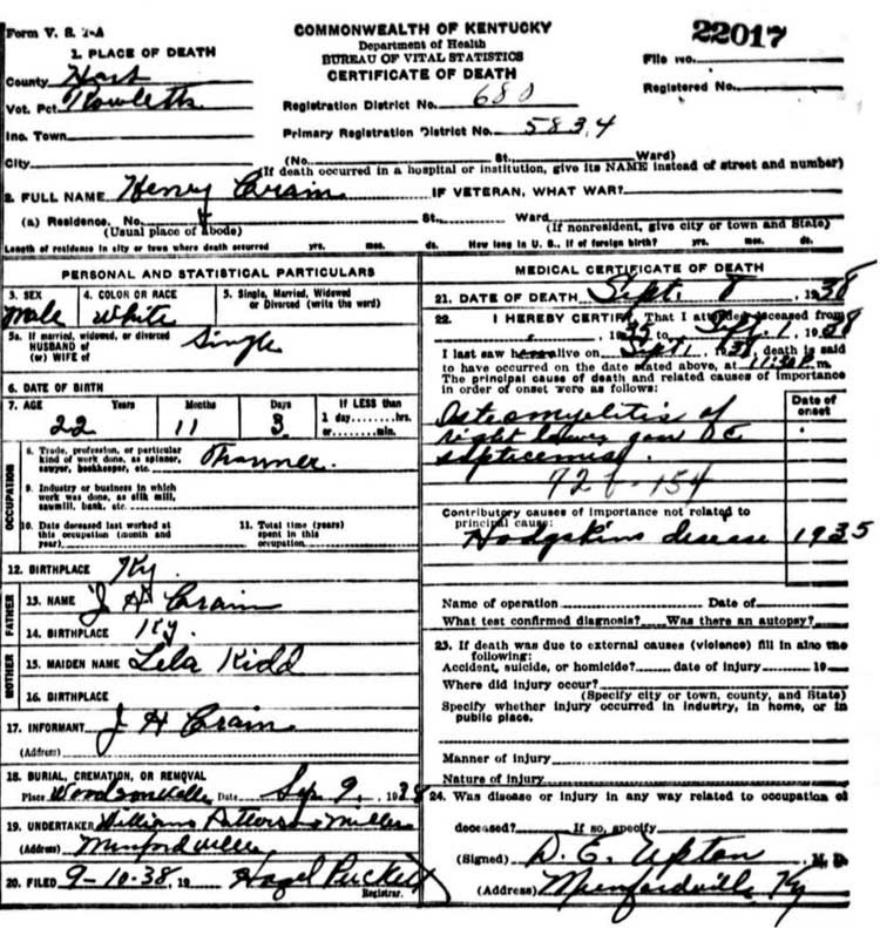 Form V. S. 1-A
COMMONWEALTH OF KENTUCKY
Department of Health
BUREAU OF VITAL STATISTICS
CERTIFICATE OF DEATH
22017
File No.
Registered No.
1. PLACE OF DEATH
County Hart
Vot. Pct. Rowletts
Inc. Town
City
Registration District No. 680
Primary Registration District No. 5834
(No. St. Ward)
(If death occurred in a hospital or institution, give its NAME instead of street and number)
2. FULL NAME Henry Crain IF VETERAN, WHAT WAR?
(a) Residence. No. St. Ward
(Usual place of abode) (If nonresident, give city or town and State)
Length of residence in city or town where death occurred yrs. mos. ds. How long in U. S., if of foreign birth? yrs. mos. ds.
PERSONAL AND STATISTICAL PARTICULARS
3. SEX 4. COLOR OR RACE 5. Single, Married, Widowed
or Divorced (write the word)
Male White
5a. If married, widowed, or divorced
HUSBAND of
(or) WIFE of
Single
6. DATE OF BIRTH
7. AGE Years Months Days If LESS than
1 day........hrs.
or........min.
22 11 3
OCCUPATION
8. Trade, profession, or particular
kind of work done, as spinner,
sawyer, bookkeeper, etc.
9. Industry or business in which
work was done, as silk mill,
sawmill, bank, etc.
10. Date deceased last worked at
this occupation (month and
year)
11. Total time (years)
spent in this
occupation
12. BIRTHPLACE Ky.
FATHER
13. NAME J H Crain
14. BIRTHPLACE Ky.
MOTHER
15. MAIDEN NAME Lela Kidd
16. BIRTHPLACE
17. INFORMANT J H Crain
(Address)
18. BURIAL, CREMATION, OR REMOVAL
Place Woodsonville Date Sep 9, 1938
19. UNDERTAKER Williams Patterson Miller
(Address) Munfordville
20. FILED 9-10-38, 19 Hazel Puckett
Registrar.
MEDICAL CERTIFICATE OF DEATH
21. DATE OF DEATH Sept. 8, 1938
22. I HEREBY CERTIFY, That I attended deceased from
, 1935 to Sept. 1, 1938
I last saw h alive on Sept 1, 1938, death is said
to have occurred on the date stated above, at 11:30 P. m.
The principal cause of death and related causes of importance
in order of onset were as follows:
Date of
onset
Osteomyelitis of
right lower jaw
septicemia.
154
Contributory causes of importance not related to
principal cause:
Hodgskins disease 1935
Name of operation Date of
What test confirmed diagnosis? Was there an autopsy?
23. If death was due to external causes (violence) fill in also the
following:
Accident, suicide, or homicide? date of injury 19
Where did injury occur?
(Specify city or town, county, and State)
Specify whether injury occurred in industry, in home, or in
public place.
Manner of injury
Nature of injury
24. Was disease or injury in any way related to occupation of
deceased? If so, specify
(Signed) D. E. Upton M. D.
(Address) Munfordville Ky